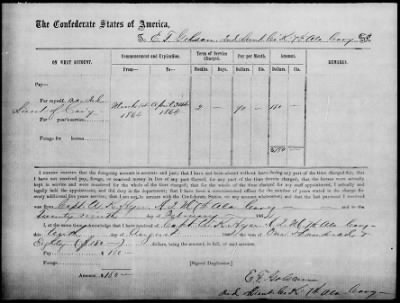 The Confederate States of America,
To E. F. Golson 2nd Lieut Co. K 7th Ala Cavy Dr.
ON WHAT ACCOUNT.
Commencement and Expiration.
Term of Service Charged.
Pay per Month.
Amount.
REMARKS.
From—
To—
Months.
Days.
Dols.
Cts.
Dollars.
Cts.
Pay—
For myself,
Lieut of Cavy
March 1st
1864
April 30th
1864
2
90
180
For years' service,
Forage for horses
$180
I HEREBY CERTIFY, that the foregoing account is accurate and just; that I have not been absent without leave during any part of the time charged; that
I have not received pay, forage, or received money in lieu of any part thereof, for any part of the time therein charged; that the horses were actually
kept in service and were mustered for the whole of the time charged; that for the whole of the time charged for my staff appointment, I actually and
legally held the appointment, and did duty in the department; that I have been a commissioned officer for the number of years stated in the charge for
every additional five years' service; that I am not in arrears with the Confederate States, on any account whatsoever; and that the last payment I
received was from Capt
7th Ala Cavy
twenty
February
At the same time, I acknowledge that I have received of Capt
7th Ala Cavy
this
day of August
One Hundred &
Eighty ($180) dollars, being the amount, in full, of said account.
Pay
$180
Forage
Amount $180
[Signed Duplicate]
E. F. Golson
2nd Lieut Co. K 7th Ala Cavy